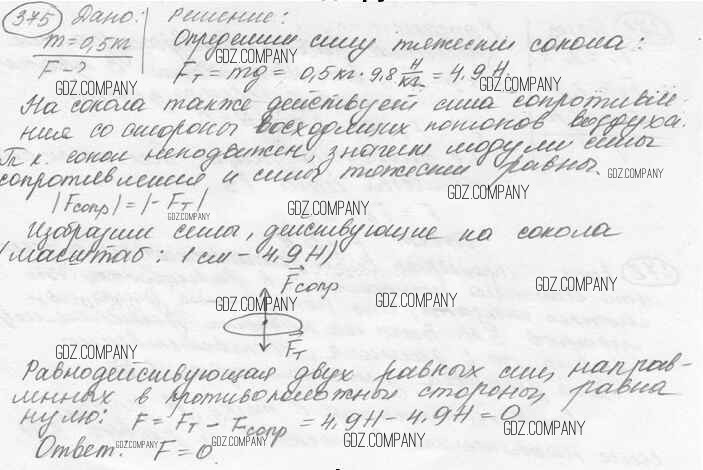 375 Дано: Решение:
m = 0,5 кг Определим силу тяжести сокола:
F - ? Fт = mg = 0,5 кг · 9,8 Н/кг = 4,9 Н.
GDZ.COMPANY
GDZ.COMPANY GDZ.COMPANY
На сокола также действует сила сопротивле-
ния со стороны восходящих потоков воздуха.
Т.к. сокол неподвижен, значит модули силы
сопротивления и силы тяжести равны.
GDZ.COMPANY
GDZ.COMPANY
|Fсопр| = |- Fт|
GDZ.COMPANY GDZ.COMPANY
Изобразим силы, действующие на сокола
(масштаб: 1 см - 4,9 Н)
Fсопр
GDZ.COMPANY
GDZ.COMPANY GDZ.COMPANY
Fт
GDZ.COMPANY
Равнодействующая двух равных сил, направ-
лнных в противоположны стороны, равна
нулю: F = Fт - Fсопр = 4,9Н - 4,9Н = 0
GDZ.COMPANY
Ответ: F = 0.
GDZ.COMPANY GDZ.COMPANY GDZ.COMPANY